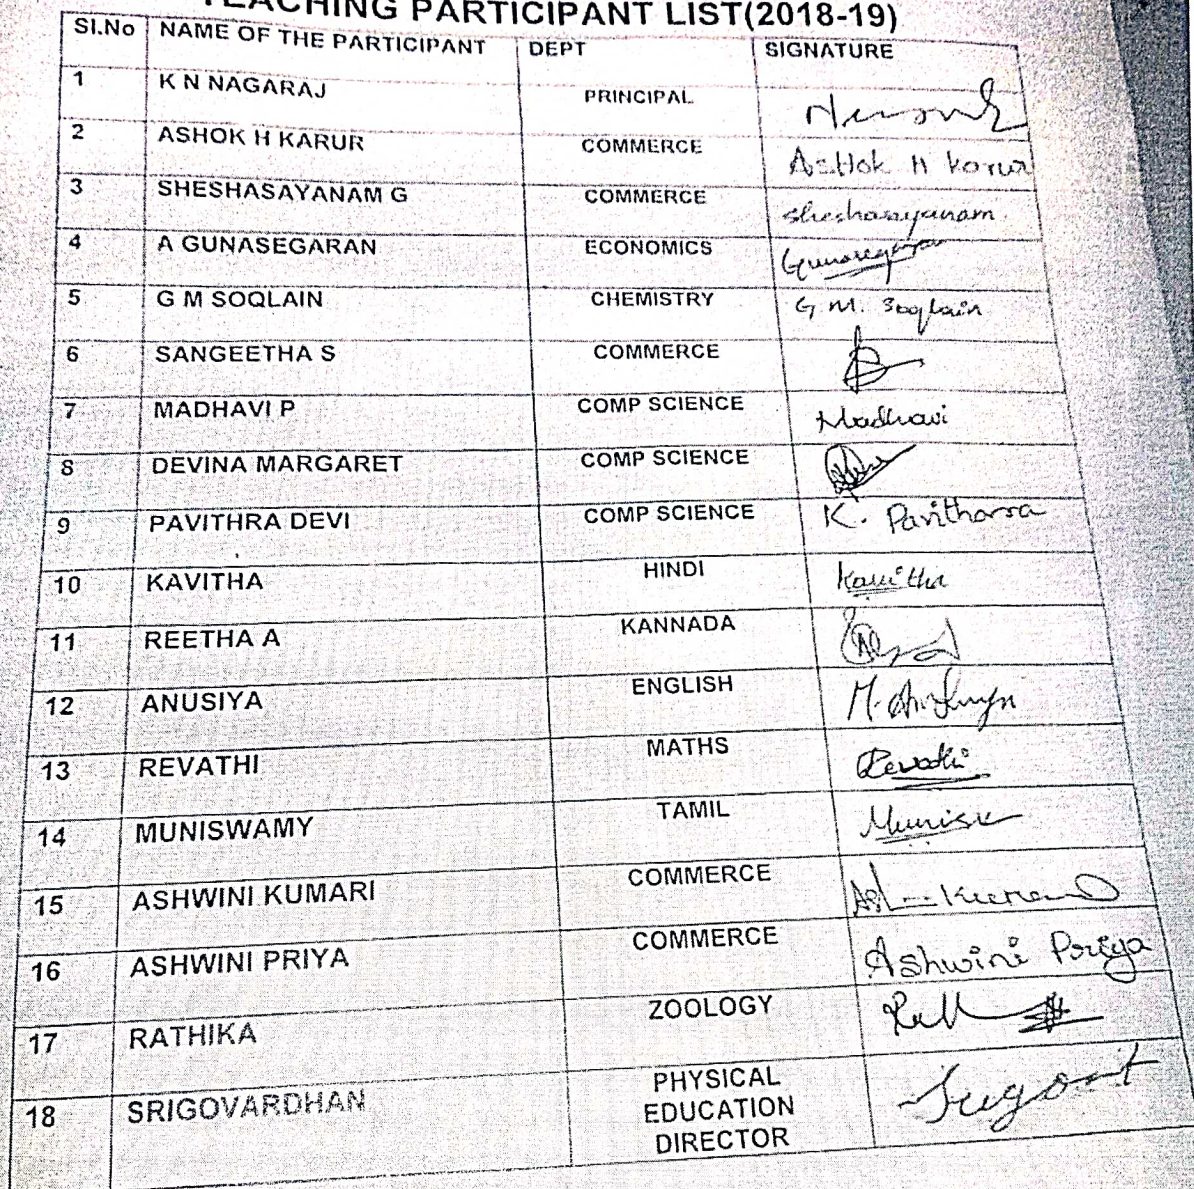 TEACHING PARTICIPANT LIST(2018-19)
SI.No NAME OF THE PARTICIPANT DEPT SIGNATURE
1 K N NAGARAJ PRINCIPAL
2 ASHOK H KARUR COMMERCE Ashok H Karur
3 SHESHASAYANAM G COMMERCE Sheshasayanam
4 A GUNASEGARAN ECONOMICS Gunasegaran
5 G M SOQLAIN CHEMISTRY G M. Soqlain
6 SANGEETHA S COMMERCE
7 MADHAVI P COMP SCIENCE Madhavi
8 DEVINA MARGARET COMP SCIENCE
9 PAVITHRA DEVI COMP SCIENCE K. Pavithara
10 KAVITHA HINDI Kavitha
11 REETHA A KANNADA
12 ANUSIYA ENGLISH
13 REVATHI MATHS Revathi
14 MUNISWAMY TAMIL
15 ASHWINI KUMARI COMMERCE
16 ASHWINI PRIYA COMMERCE Ashwini Priya
17 RATHIKA ZOOLOGY
18 SRIGOVARDHAN PHYSICAL
EDUCATION
DIRECTOR